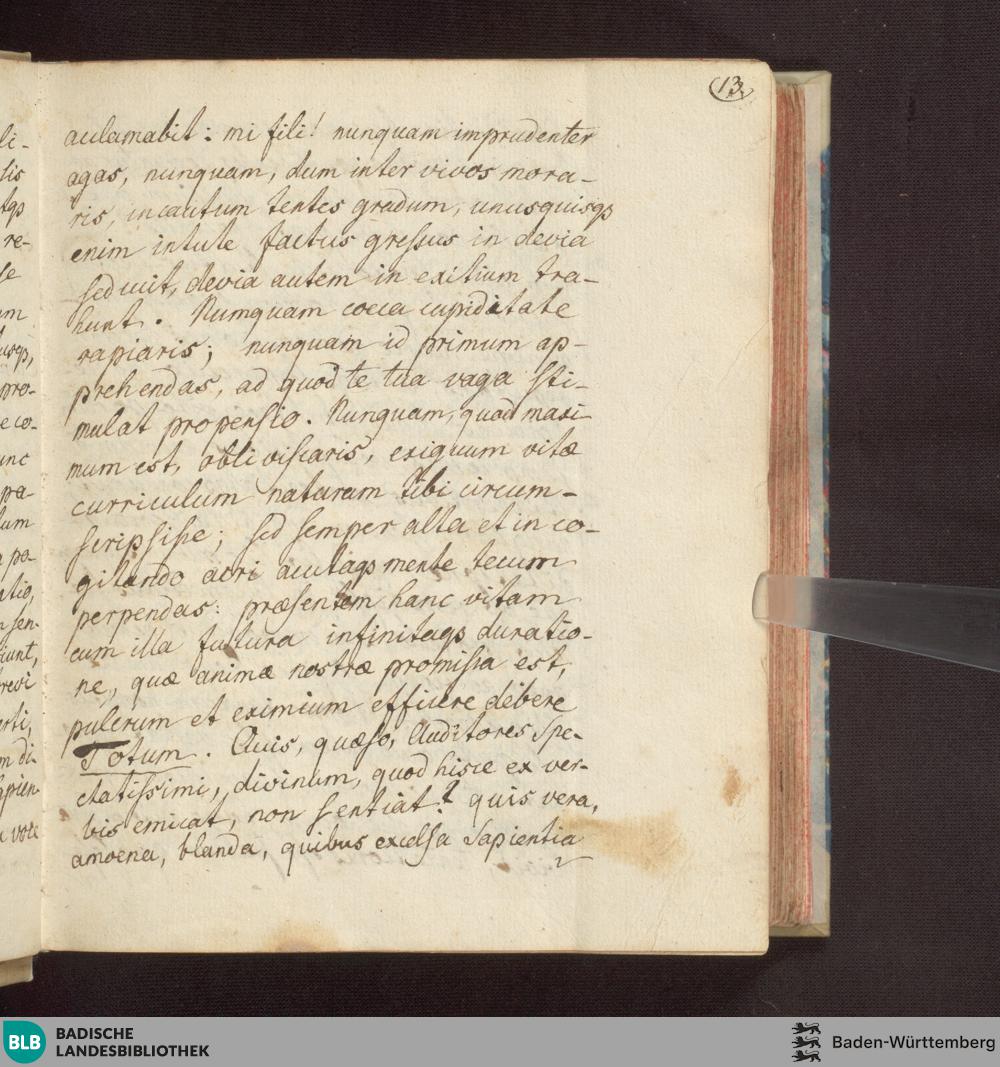 13.
aclamabit: mi fili! nunquam imprudenter
agas, nunquam, dum inter vivos mora-
ris, incautum tentes gradum, unusquisqs
enim intute factus gressus in devia
seducit, devia autem in exitium tra-
hunt. Numquam coeca cupiditate
rapiaris; nunquam id primum ap-
prehendas, ad quod te tua vaga sti-
mulat propensio. Nunquam, quod maxi-
mum est, obliviscaris, exiguum vitæ
curriculum naturam tibi circum-
scripsisse; sed semper alta et in co-
gitando acri acutaqs mente tecum
perpendas: præsentem hanc vitam
cum illa futura infinitaqs duratio-
ne, quæ animæ nostræ promissa est,
pulcrum et eximium efficere debere
Totum. Quis, quæso, Auditores Spe-
ctatissimi, divinum, quod hisce ex ver-
bis emicat, non sentiat? quis vera,
amoena, blanda, quibus excelsa Sapientia
BLB BADISCHE
LANDESBIBLIOTHEK
Baden-Württemberg